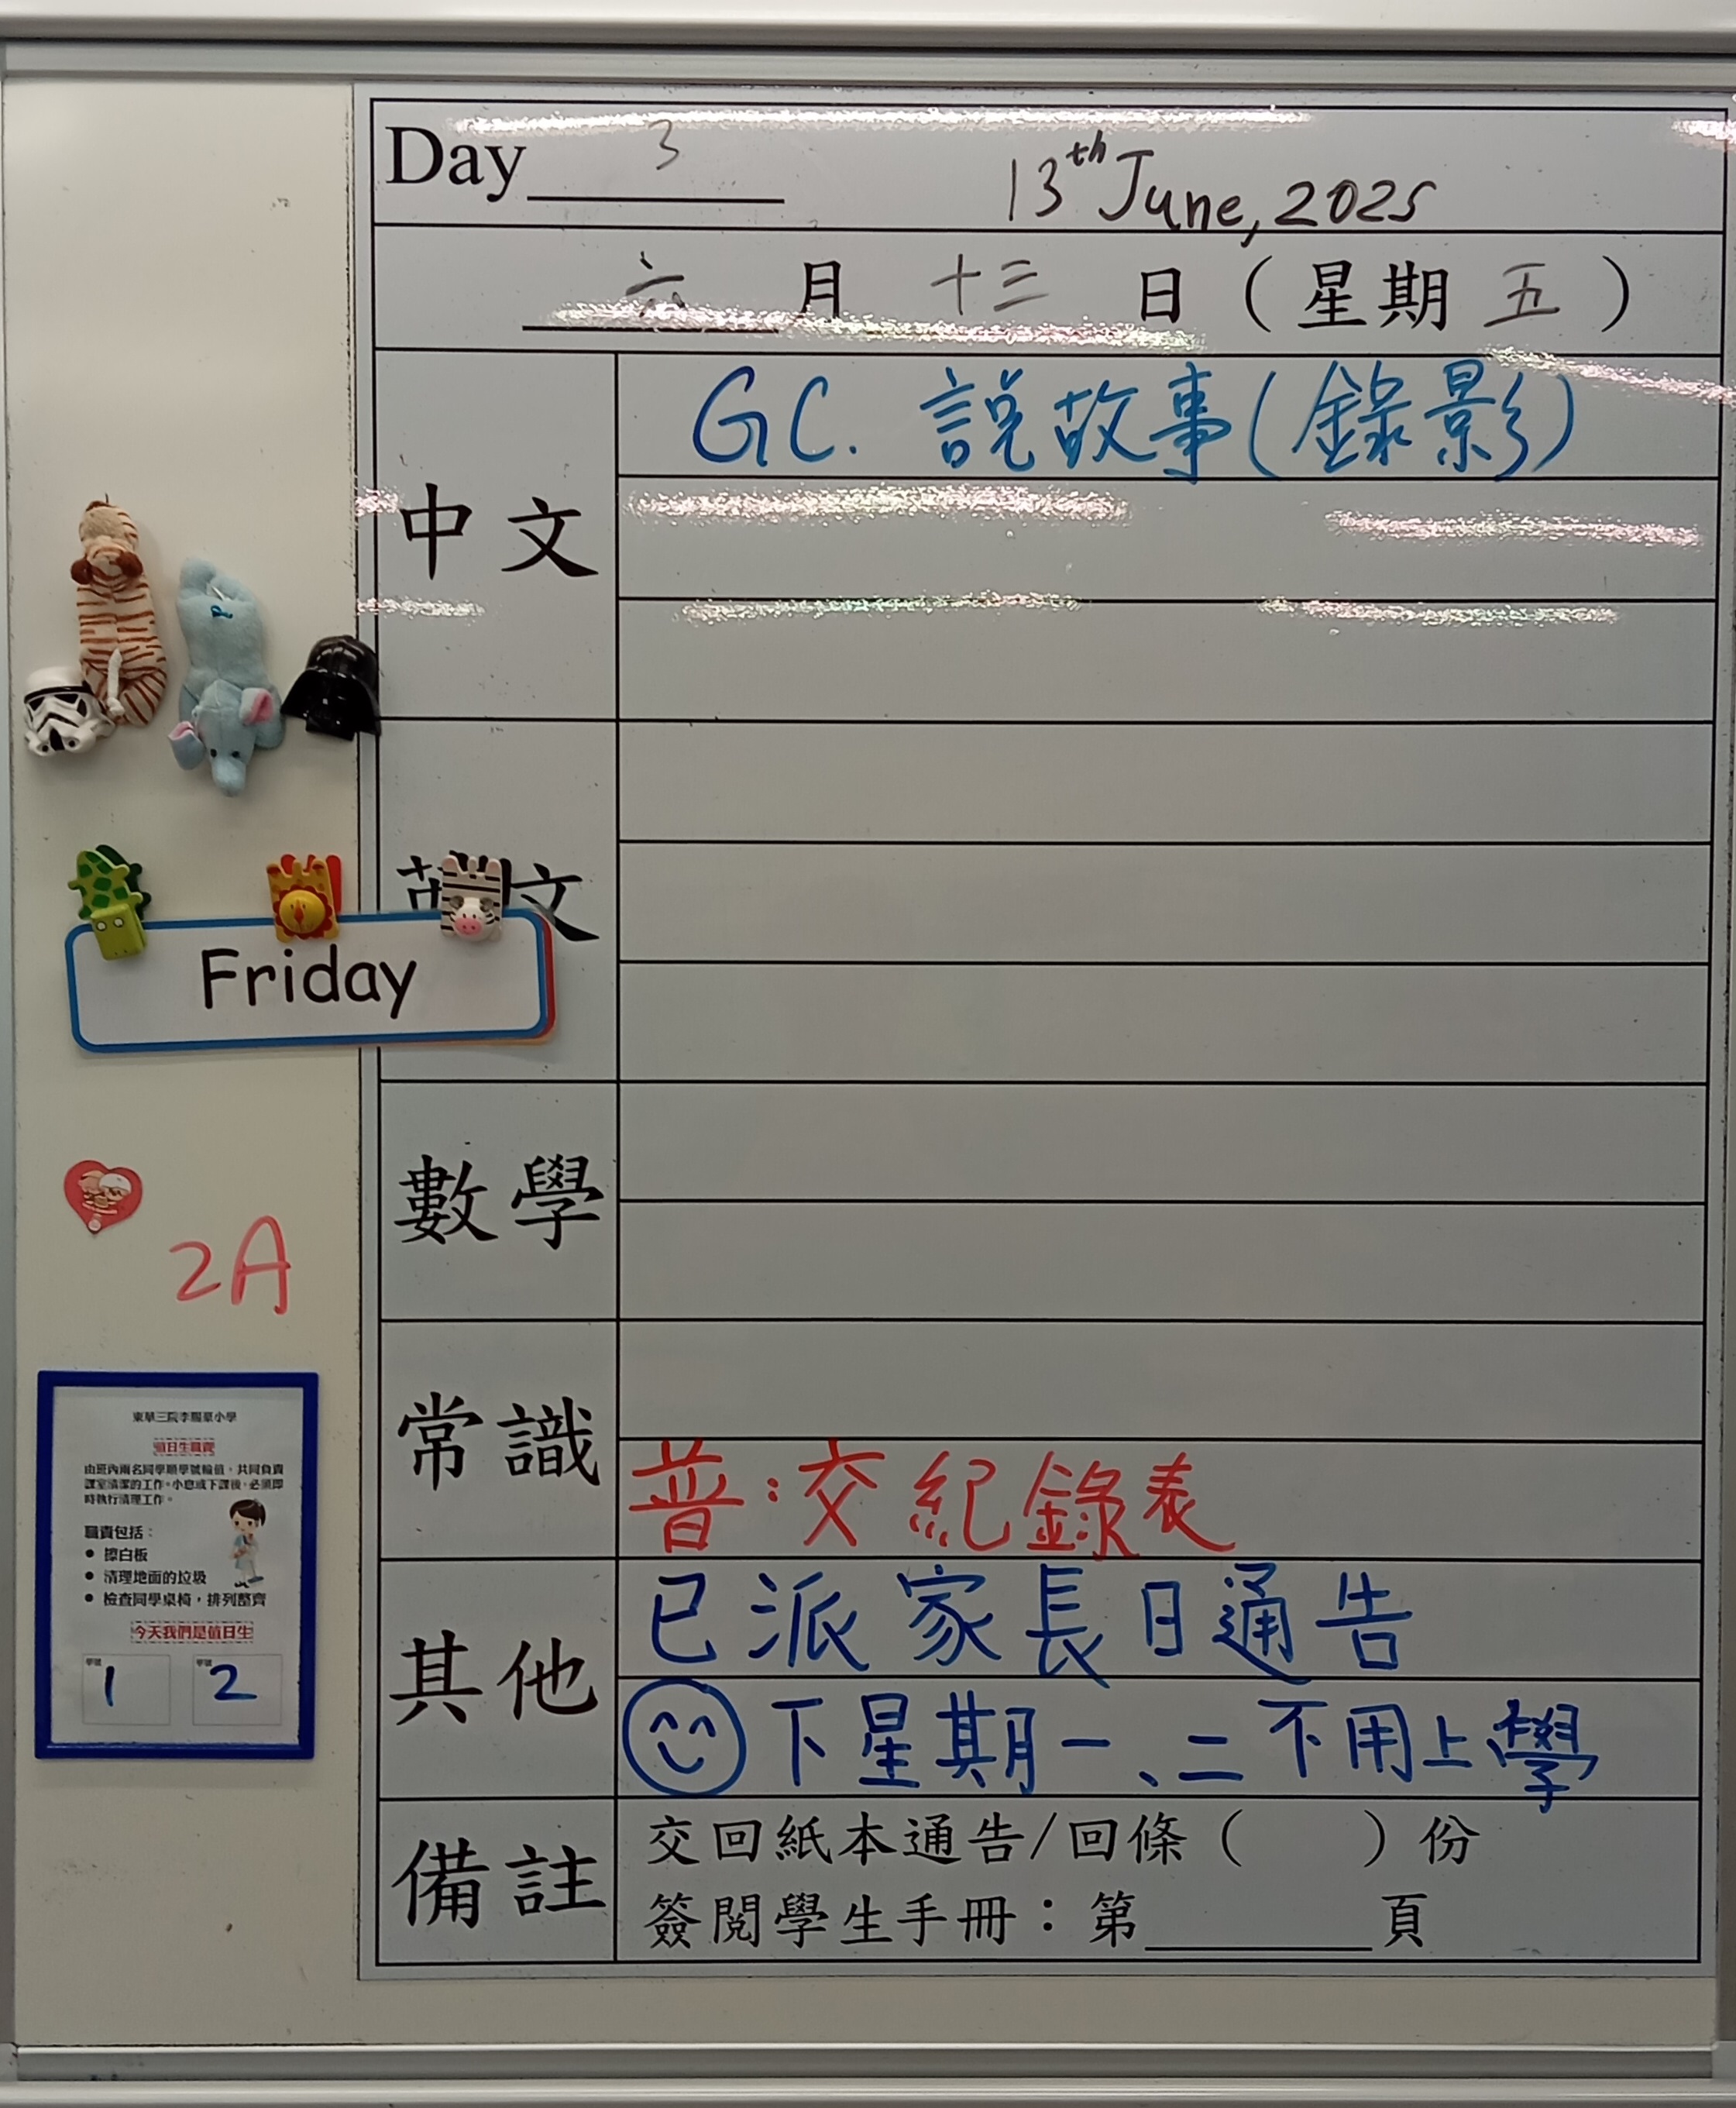 Day 3 13th June, 2025
六 月 十三 日 ( 星期 五 )
中文 GC. 說故事(錄影)
文
Friday
數學
2A
常識
普:交紀錄表
其他 已派家長日通告
下星期一、二不用上學
備註 交回紙本通告/回條( )份
簽閱學生手冊:第______頁
值日生職責
由班內兩名同學順學號輪值,共同負責
課室清潔的工作。小息或下課後,必須即
時執行清理工作。
職責包括:
● 擦白板
● 清理地面的垃圾
● 檢查同學桌椅,排列整齊
今天我們是值日生
學號 1 學號 2